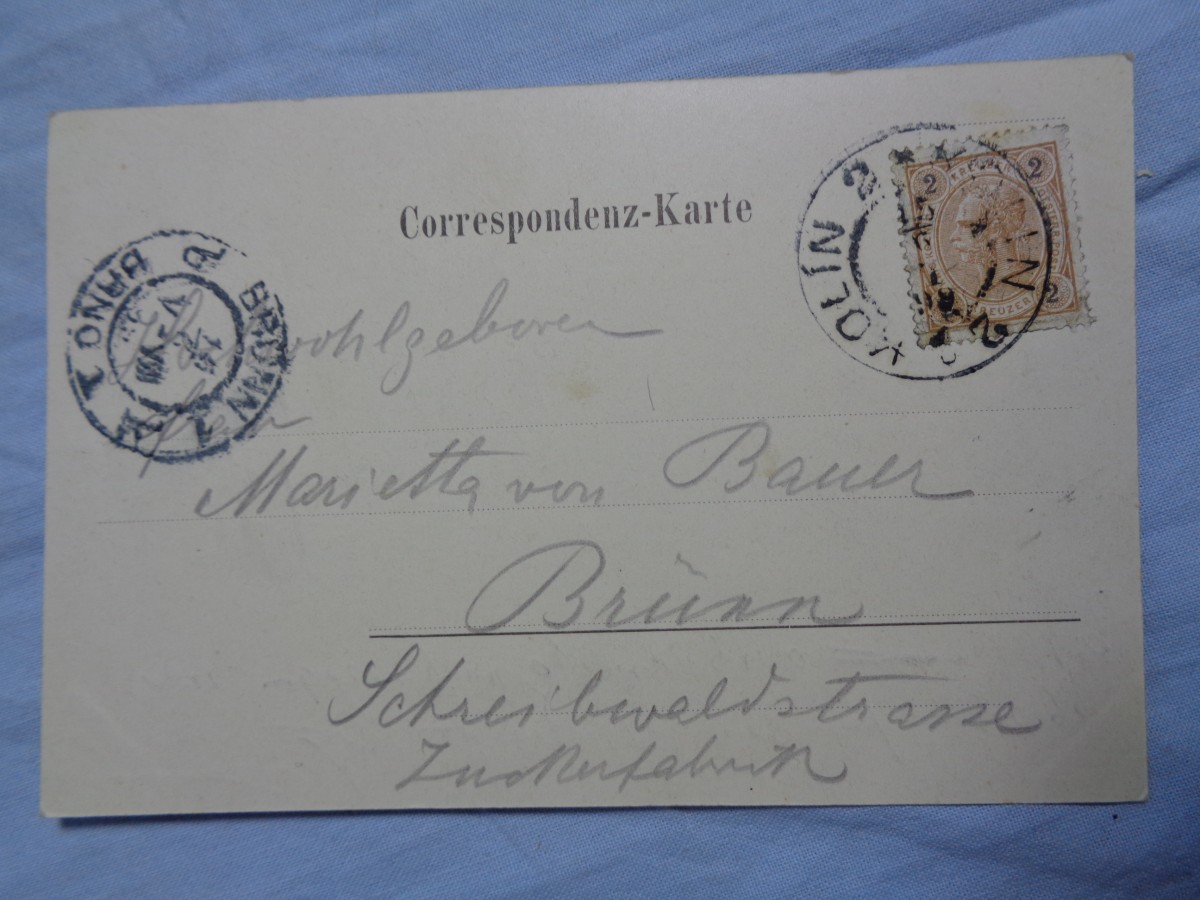 Correspondenz-Karte
KOLÍN 2
2 KREUZER 2
2
KREUZER
BRÜNN 1
BRNO 1
wohlgeboren
Frau
Marietta von Bauer
Brünn
Schreibwaldstrasse
Zuckerfabrik